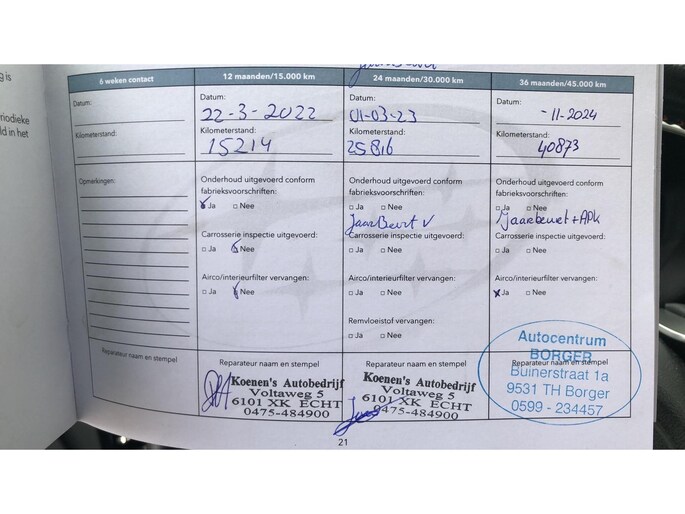 g is
riodieke
ld in het
6 weken contact
Datum:
Kilometerstand:
Opmerkingen:
Reparateur naam en stempel
12 maanden/15.000 km
Datum:
22-3-2022
Kilometerstand:
15214
Onderhoud uitgevoerd conform
fabrieksvoorschriften:
Ja Nee
Carrosserie inspectie uitgevoerd:
Ja Nee
Airco/interieurfilter vervangen:
Ja Nee
Reparateur naam en stempel
Koenen's Autobedrijf
Voltaweg 5
6101 XK ECHT
0475-484900
24 maanden/30.000 km
Datum:
01-03-23
Kilometerstand:
25816
Onderhoud uitgevoerd conform
fabrieksvoorschriften:
Ja Nee
JaarBeurt V
Carrosserie inspectie uitgevoerd:
Ja Nee
Airco/interieurfilter vervangen:
Ja Nee
Remvloeistof vervangen:
Ja Nee
Reparateur naam en stempel
Koenen's Autobedrijf
Voltaweg 5
6101 XK ECHT
0475-484900
36 maanden/45.000 km
Datum:
-11-2024
Kilometerstand:
40873
Onderhoud uitgevoerd conform
fabrieksvoorschriften:
Ja Nee
Jaarbeurt + APK
Carrosserie inspectie uitgevoerd:
Ja Nee
Airco/interieurfilter vervangen:
Ja Nee
Reparateur naam en stempel
Autocentrum
BORGER
Buinerstraat 1a
9531 TH Borger
0599 - 234457
21